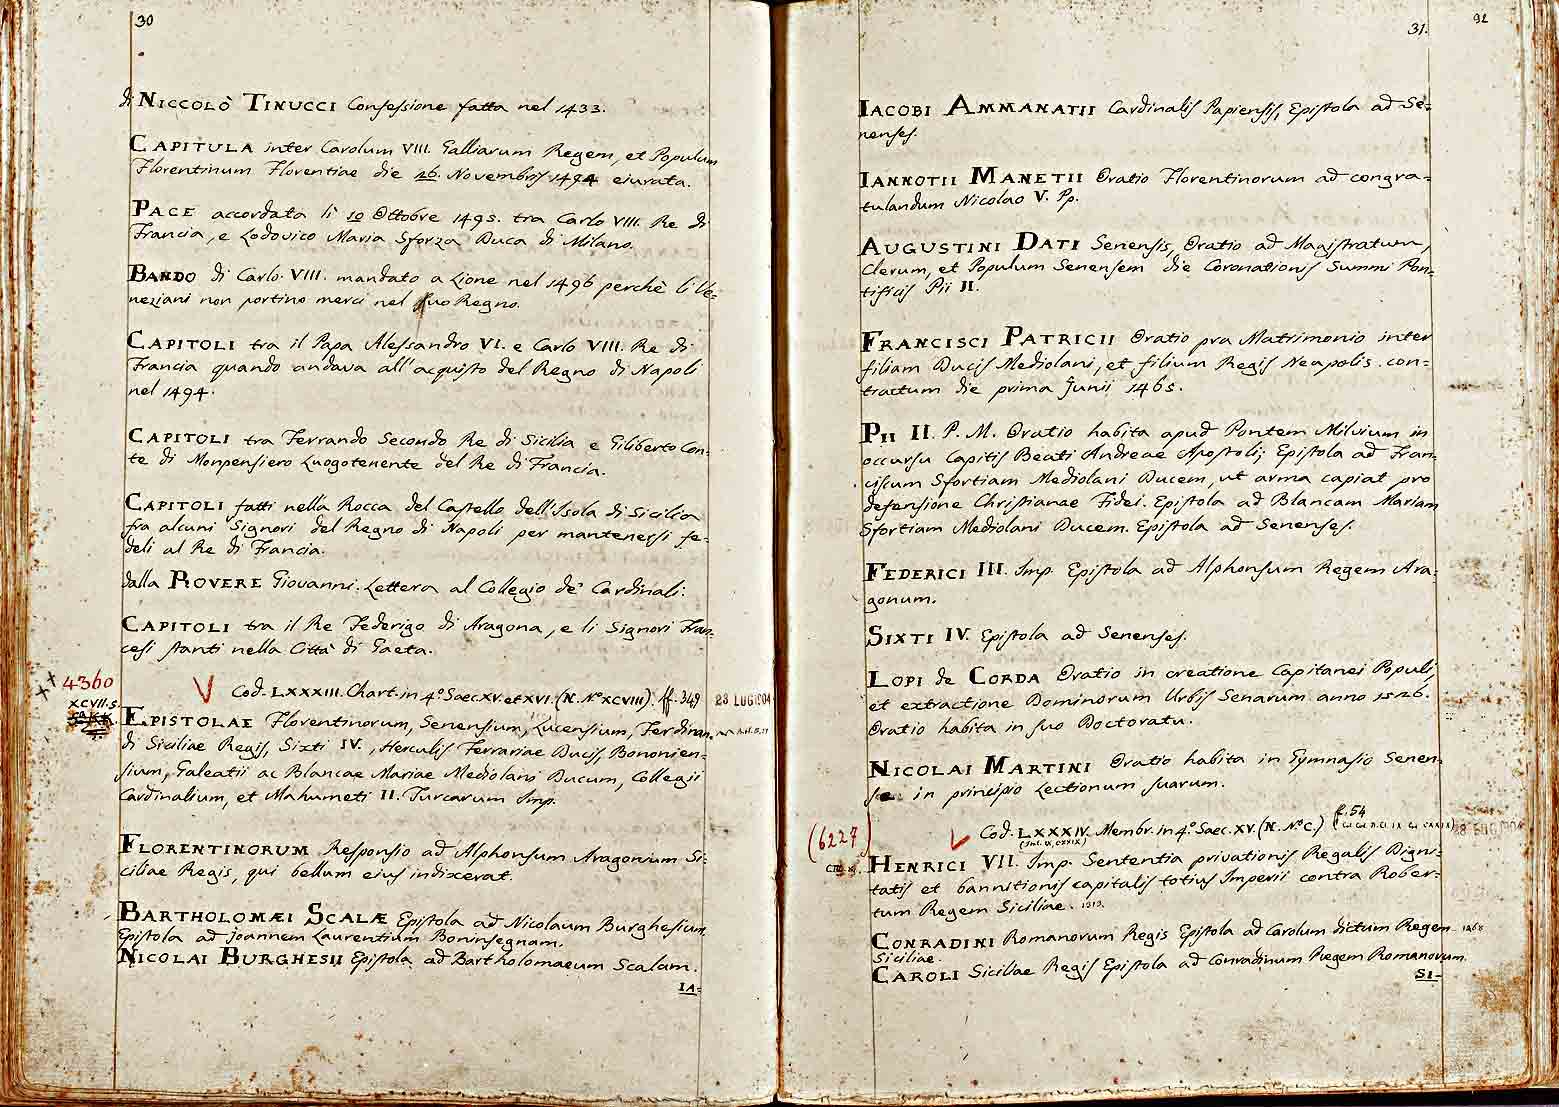 30
di NICCOLÒ TINUCCI Confessione fatta nel 1433.
CAPITULA inter Carolum VIII. Galliarum Regem, et Populum
Florentinum Florentiae die 26. Novembris 1494 eiurata.
PACE accordata li 10 Ottobre 1495. tra Carlo VIII. Re di
Francia, e Lodovico Maria Sforza Duca di Milano.
BANDO di Carlo VIII. mandato a Lione nel 1496 perchè li Ve=
neziani non portino merci nel suo Regno.
CAPITOLI tra il Papa Alessandro VI. e Carlo VIII. Re di
Francia quando andava all'acquisto del Regno di Napoli
nel 1494.
CAPITOLI tra Ferrando Secondo Re di Sicilia e Giliberto Con=
te di Monpensiero Luogotenente del Re di Francia.
CAPITOLI fatti nella Rocca del Castello dell'Isola di Sicilia
fra alcuni Signori del Regno di Napoli per mantenersi fe=
deli al Re di Francia.
dalla ROVERE Giovanni. Lettera al Collegio de' Cardinali.
CAPITOLI tra il Re Federigo di Aragona, e li Signori Fran=
cesi stanti nella Città di Gaeta.
4360
V Cod. LXXXIII. Chart. in 4.º Saec. XV. et XVI. (N. Nº XCVIII). ff. 349
XCVII.s.
EPISTOLAE Florentinorum, Senensium, Lucensium, Ferdinan=
di Siciliae Regis, Sixti IV., Herculis Ferrariae Ducis, Bononien=
sium, Galeatii ac Blancae Mariae Mediolani Ducum, Collegii
Cardinalium, et Mahumeti II. Turcarum Imp.
FLORENTINORUM Responsio ad Alphonsum Aragonium Si=
ciliae Regis, qui bellum eius indixerat.
BARTHOLOMÆI SCALÆ Epistola ad Nicolaum Burghesium
Epistola ad Joannem Laurentium Boninsegnam.
NICOLAI BURGHESII Epistola ad Bartholomaeum Scalam.
IA=
31.
IACOBI AMMANATII Cardinalis Papiensis, Epistola ad Se=
nenses.
IANNOTII MANETII Oratio Florentinorum ad congra=
tulandum Nicolao V. Pp.
AUGUSTINI DATI Senensis, Oratio ad Magistratum,
Clerum, et Populum Senensem die Coronationis Summi Pon=
tificis Pii II.
FRANCISCI PATRICII Oratio pra Matrimonio inter
filiam Ducis Mediolani, et filium Regis Neapolis con=
tractum die prima Junii 1465.
PII II. P. M. Oratio habita apud Pontem Milvium in
occursu Capitis Beati Andreae Apostoli; Epistola ad Fran=
ciscum Sfortiam Mediolani Ducem, ut arma capiat pro
defensione Christianae Fidei. Epistola ad Blancam Mariam
Sfortiam Mediolani Ducem. Epistola ad Senenses.
FEDERICI III. Imp. Epistola ad Alphonsum Regem Ara=
gonum.
SIXTI IV. Epistola ad Senenses.
LOPI de CORDA Oratio in creatione Capitanei Populi,
et extractione Dominorum Urbis Senarum anno 1526.
Oratio habita in suo Doctoratu.
NICOLAI MARTINI Oratio habita in Gymnasio Senen=
in principio Lectionum suarum.
ff. 54
(6227)
V Cod. LXXXIV. Membr. in 4.º Saec. XV. (N. Nº C.)
HENRICI VII. Imp. Sententia privationis Regalis Digni=
tatis et bannitionis capitalis totius Imperii contra Rober=
tum Regem Siciliae. 1313.
CONRADINI Romanorum Regis Epistola ad Carolum dictum Regem 1268
Siciliae.
CAROLI Siciliae Regis Epistola ad Conradinum Regem Romanorum.
SI=